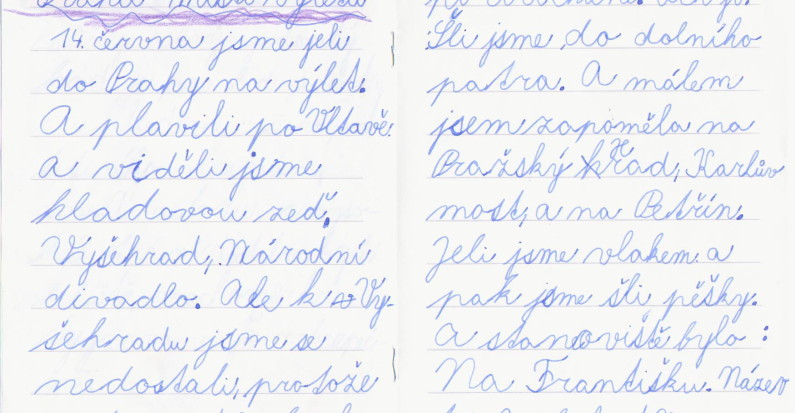 14. června jsme jeli
do Prahy na výlet.
A plavili po Vltavě.
a viděli jsme
hladovou zeď,
Vyšehrad, Národní
divadlo. Ale k Vy-
šehradu jsme se
nedostali, protože
Šli jsme do dolního
patra. A málem
jsem zapoměla na
Pražský Hrad, Karlův
most, a na Petřín.
Jeli jsme vlakem a
pak jsme šli pěšky.
A stanoviště bylo:
Na Františku. Název